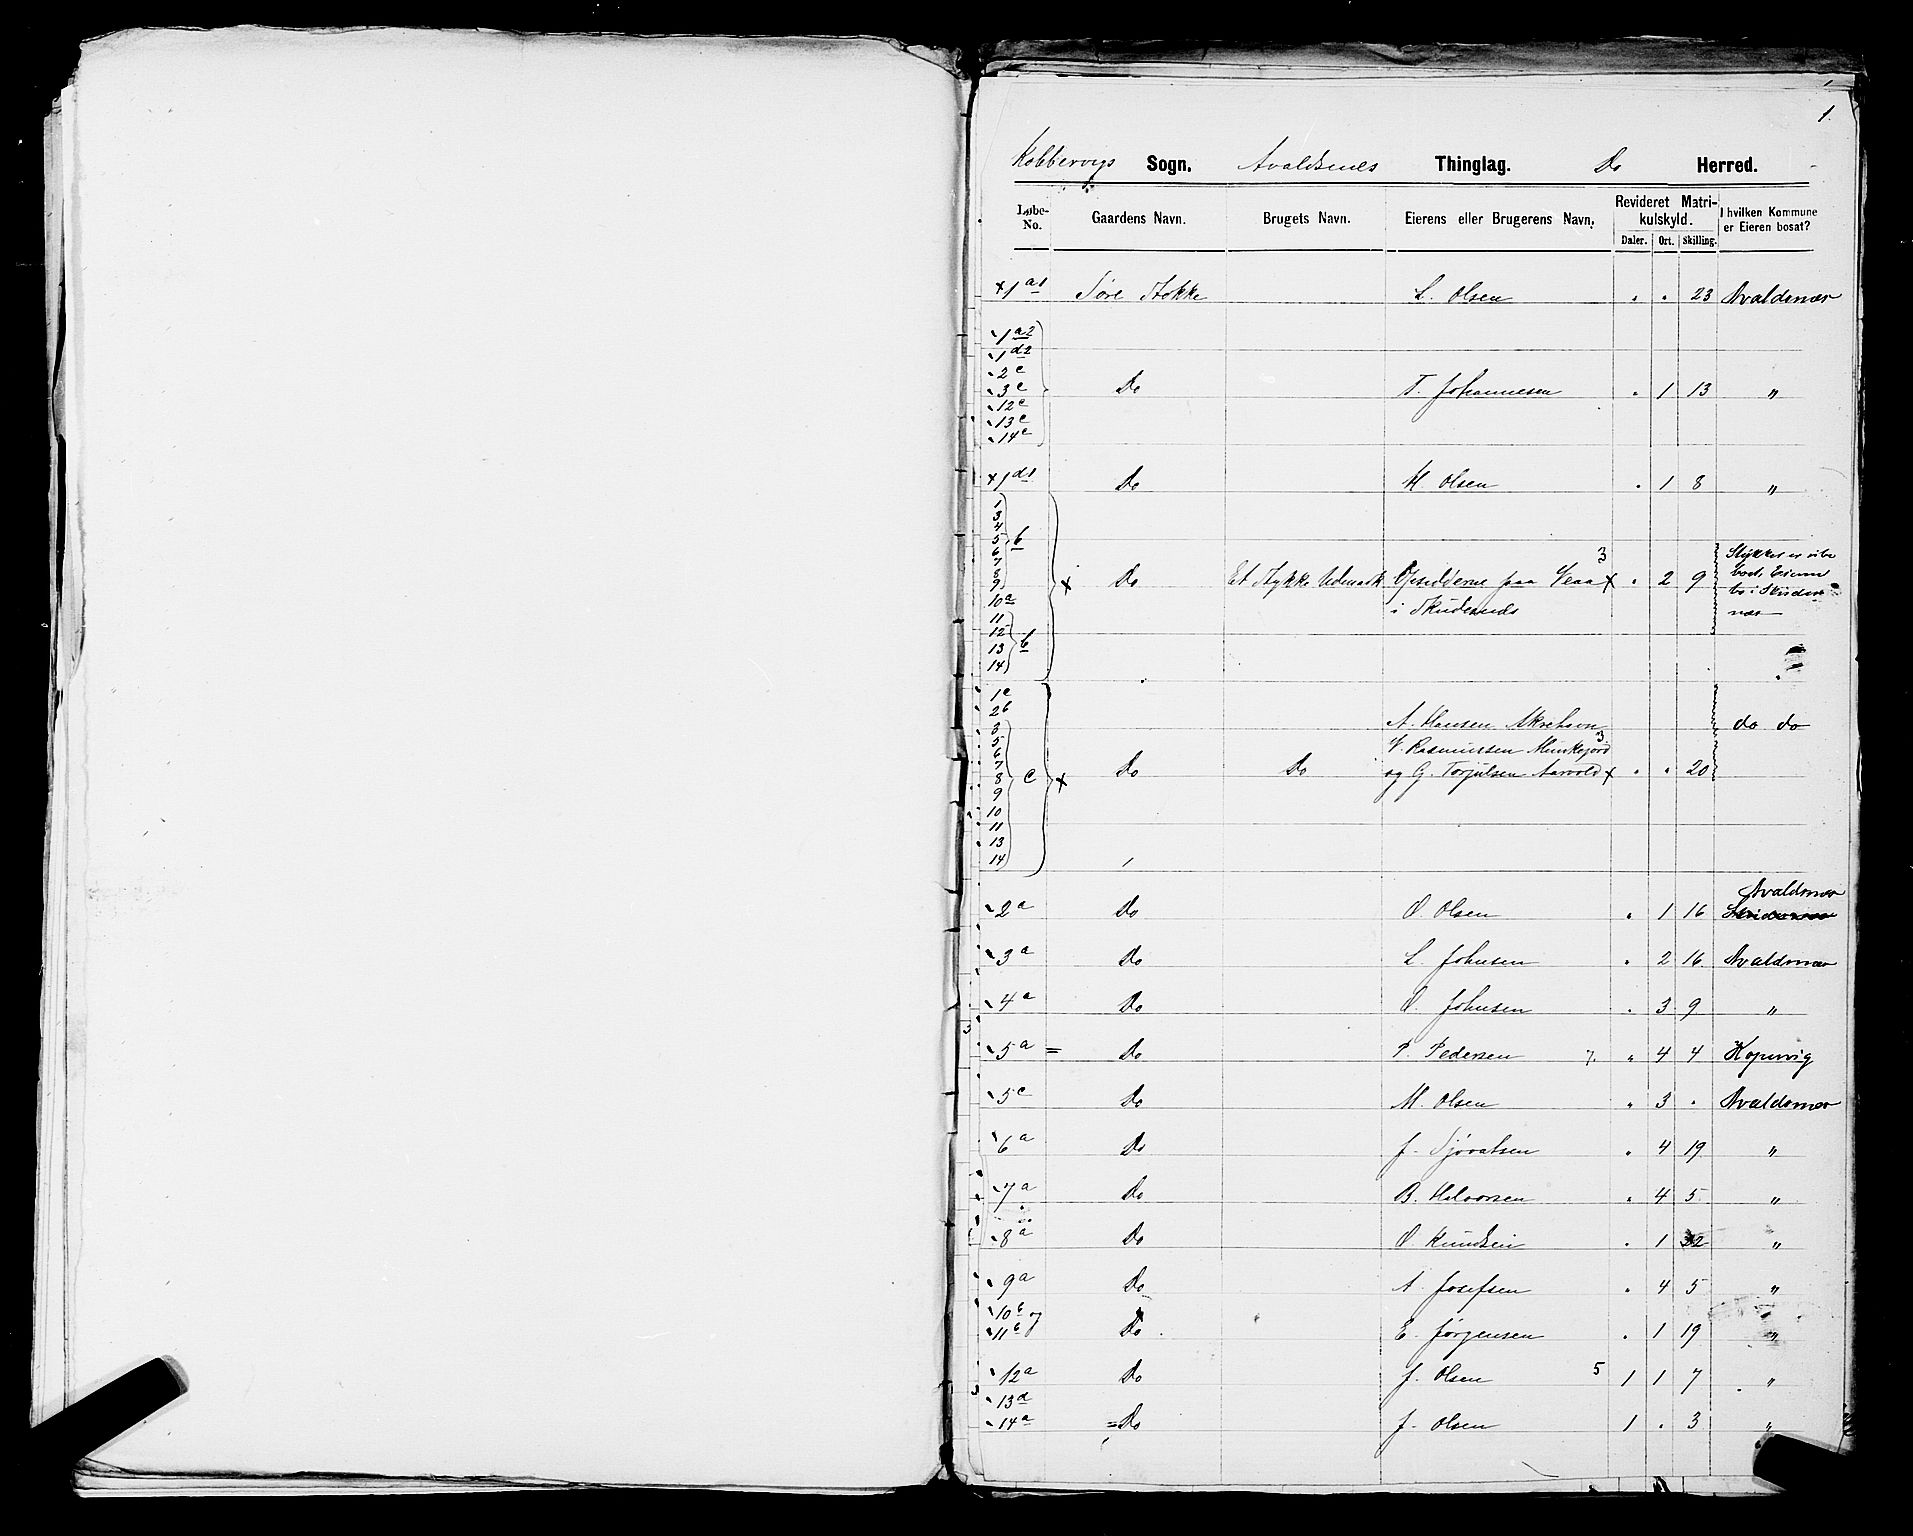 1
Kobbervigs Sogn. Avaldsnes Thinglag. Do Herred.
Løbe-No. Gaardens Navn. Brugets Navn. Eierens eller Brugerens Navn. Revideret Matrikulskyld. Daler. Ort. Skilling. I hvilken Kommune er Eieren bosat?
1 a1 Søre Stokke L. Olsen " " 23 Avaldsnæs
1 a2
1 d2
2 c
3 c Do T. Johannesen " 1 13 "
12 c
13 c
14 c
1 d1 Do H. Olsen " 1 8 "
1
3
4
5 b
6 3
7
8
9 Do Et Stykke Udmark Opsidderne paa Veaa " 2 9
10 a i Skudesnes
11
12
13 b
14
1 c
2 b
3 A. Hansen Akrehavn do do
5
6 V. Rasmussen Munkejord 3
7
8 c Do Do og G. Torjulsen Aarvold " " 20
9
10
11
13
14
Avaldsnæs
2 a Do O. Olsen " 1 16
3 a Do L. Johnsen " 2 16 Avaldsnæs
4 a Do O. Johnsen " 3 9 "
5 a = Do P. Pedersen 7. " 4 4 Kopervig
5 c Do M. Olsen " 3 " Avaldsnæs
6 a Do J. Sjøvatsen " 4 19 "
7 a Do B. Halvorsen " 4 5 "
8 a Do O. Knudsen " 1 "
9 a Do A. Josefsen " 4 5 "
10 b og
11 b Do E. Jørgensen " 1 19 "
12 a Do J. Olsen 5 1 1 7 "
13 a
14 a = Do J. Olsen 1 " 3 "